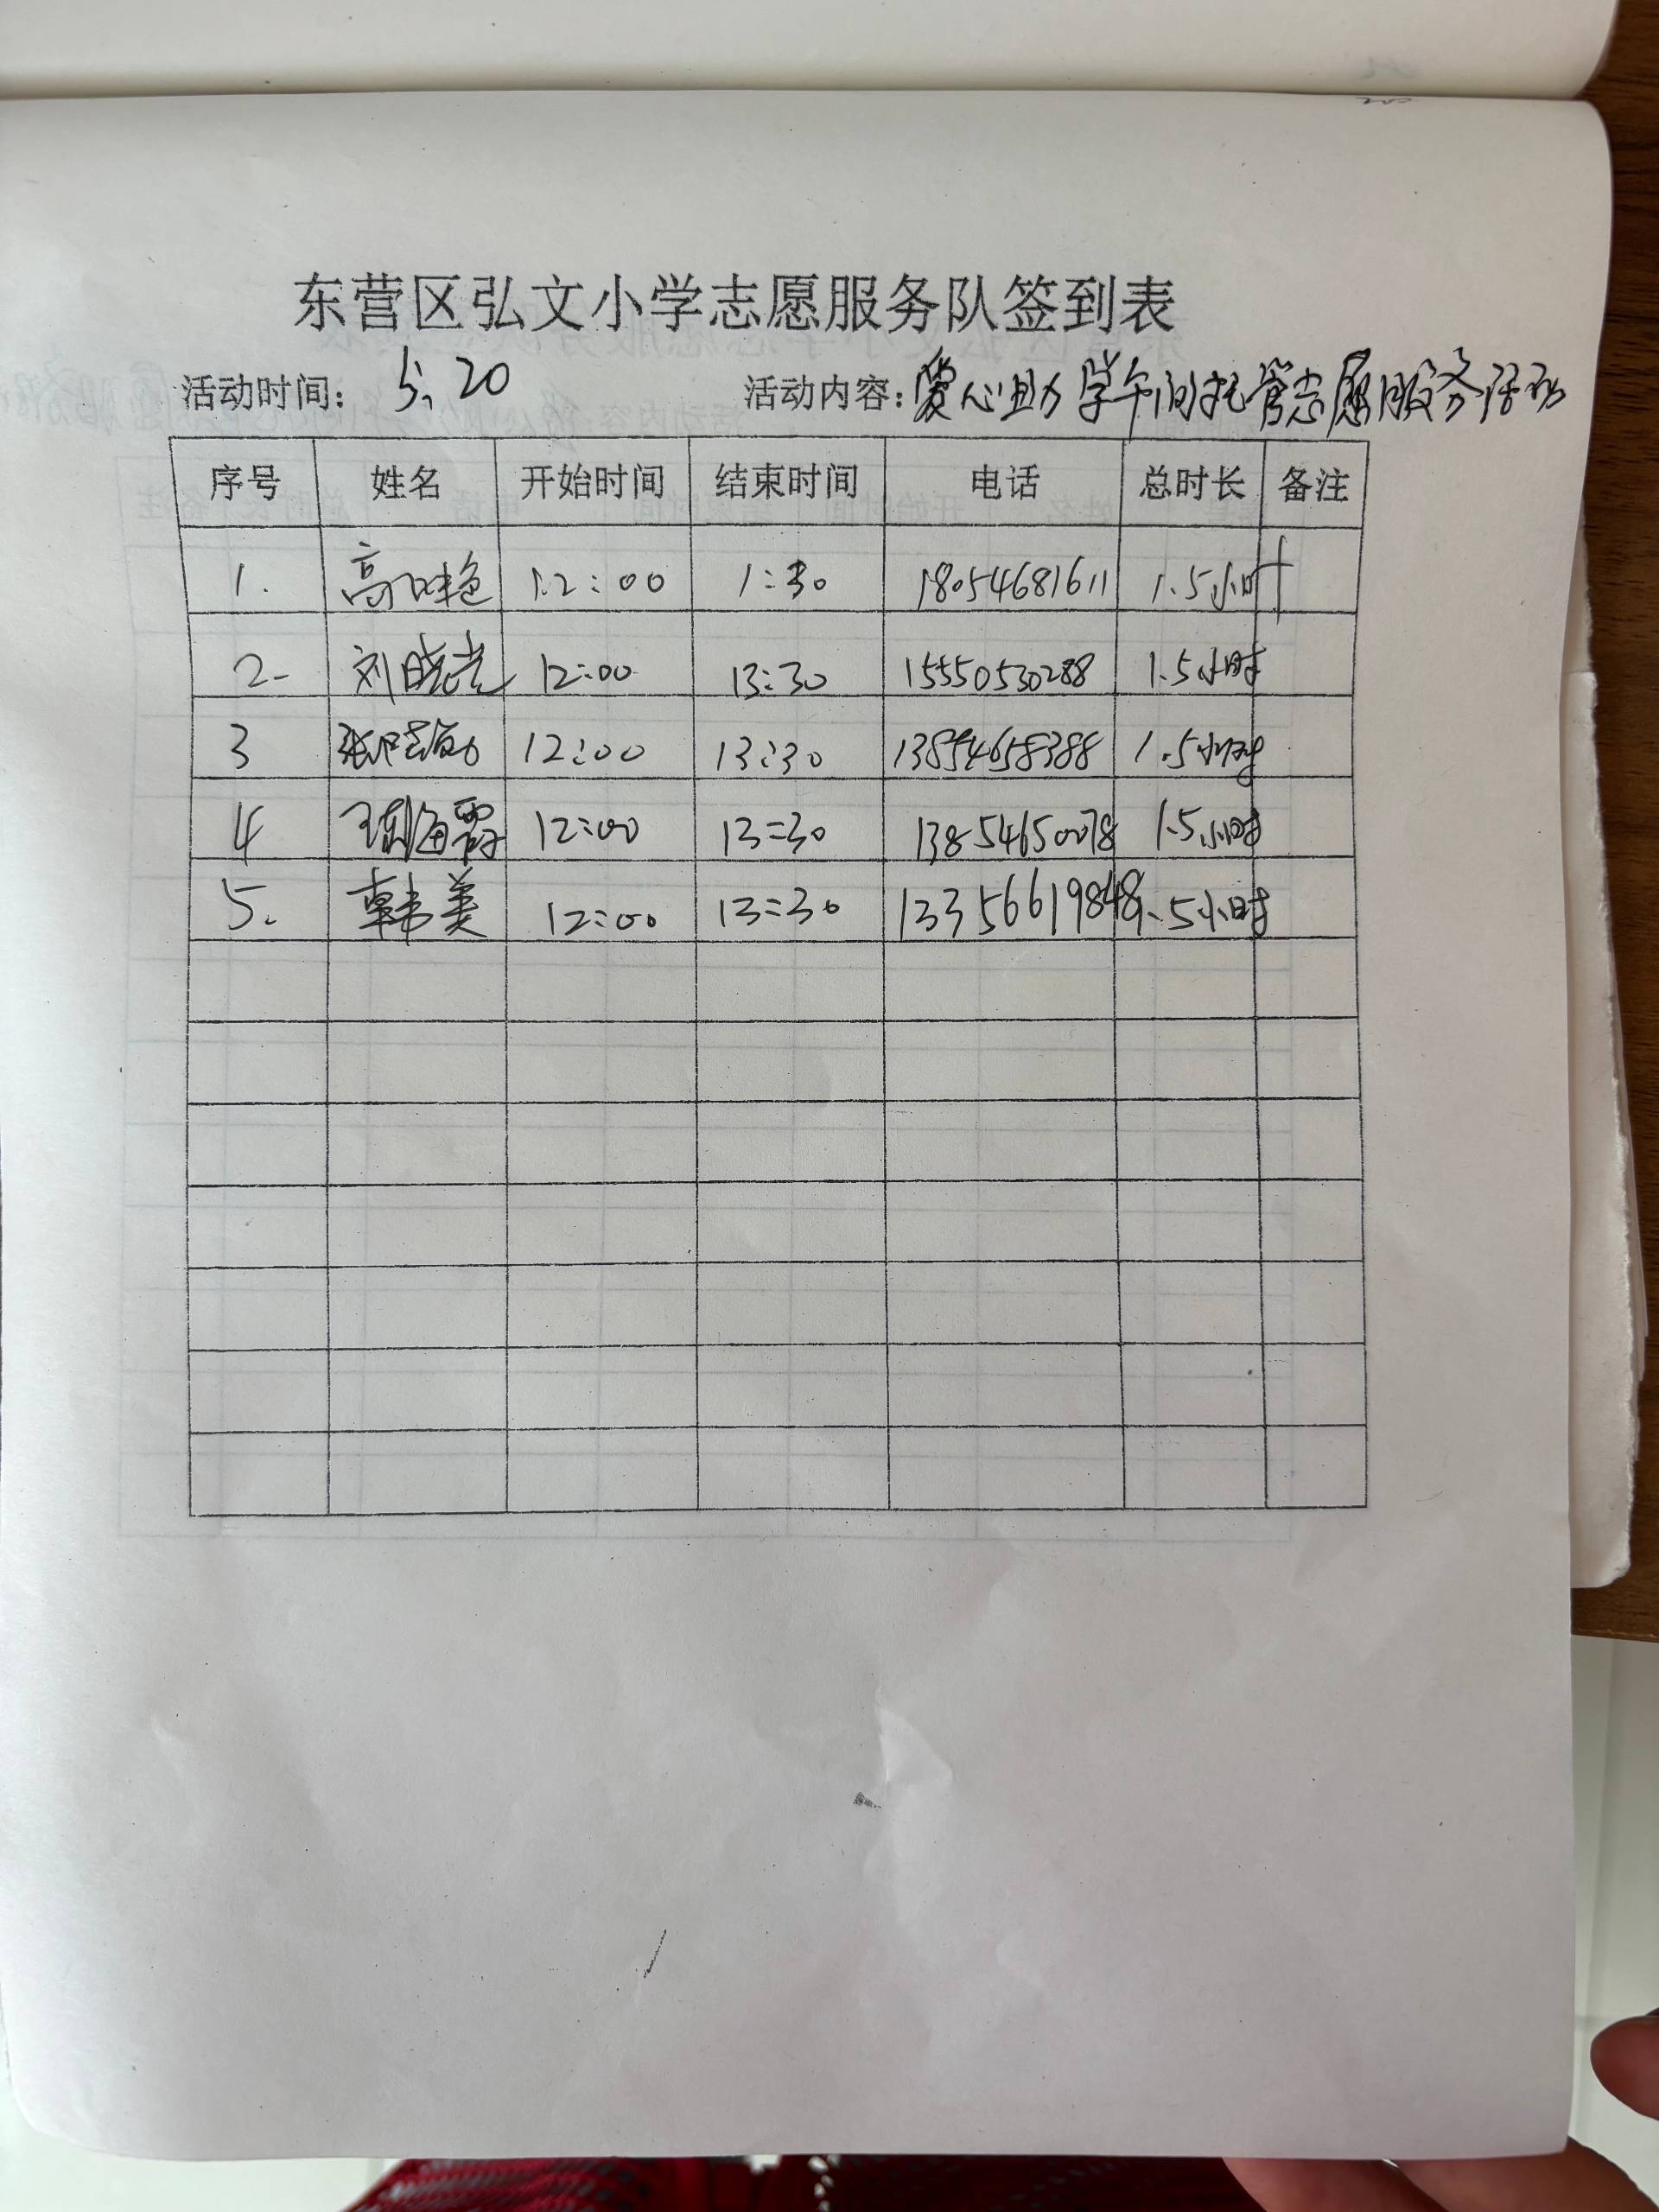 东营区弘文小学志愿服务队签到表
活动时间: 5.20 活动内容:爱心助学午间托管志愿服务活动
序号 姓名 开始时间 结束时间 电话 总时长 备注
1. 高 艳 12:00 1:30 18054681611 1.5小时
2. 刘晓光 12:00 13:30 15550530288 1.5小时
3 张 12:00 13:30 13854658388 1.5小时
4 海霞 12:00 13:30 13854650078 1.5小时
5. 韩美 12:00 13:30 13356619848 1.5小时